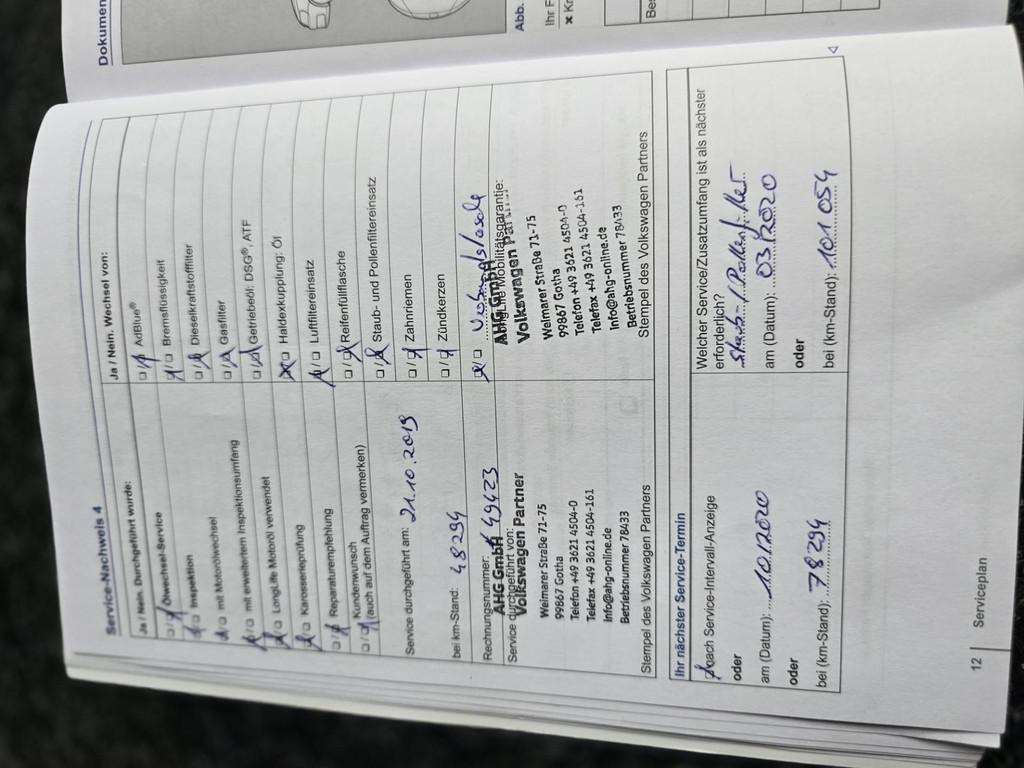 Dokumen
Abb.
Ihr F
× Kr
Bes
Service-Nachweis 4
Ja / Nein. Durchgeführt wurde:
Ölwechsel-Service
Inspektion
mit Motorölwechsel
mit erweitertem Inspektionsumfang
LongLife Motoröl verwendet
Karosserieprüfung
Reparaturempfehlung
Kundenwunsch
(auch auf dem Auftrag vermerken)
Service durchgeführt am: 21.10.2019
bei km-Stand: 48294
Rechnungsnummer: 49423
Service durchgeführt von:
AHG GmbH
Volkswagen Partner
Weimarer Straße 71-75
99867 Gotha
Telefon +49 3621 4504-0
Telefax +49 3621 4504-161
Info@ahg-online.de
Betriebsnummer 78433
Stempel des Volkswagen Partners
Ja / Nein. Wechsel von:
AdBlue®
Bremsflüssigkeit
Dieselkraftstofffilter
Gasfilter
Getriebeöl: DSG®, ATF
Haldexkupplung: Öl
Luftfiltereinsatz
Reifenfüllflasche
Staub- und Pollenfiltereinsatz
Zahnriemen
Zündkerzen
Mobilitätsgarantie:
AHG GmbH
Volkswagen Partner
Weimarer Straße 71-75
99867 Gotha
Telefon +49 3621 4504-0
Telefax +49 3621 4504-161
Info@ahg-online.de
Betriebsnummer 78433
Stempel des Volkswagen Partners
Ihr nächster Service-Termin
nach Service-Intervall-Anzeige
oder
am (Datum): 10.2020
oder
bei (km-Stand): 78294
Welcher Service/Zusatzumfang ist als nächster
erforderlich?
Staub-/Pollenfilter
am (Datum): 03.2020
oder
bei (km-Stand): 101054
12
Serviceplan